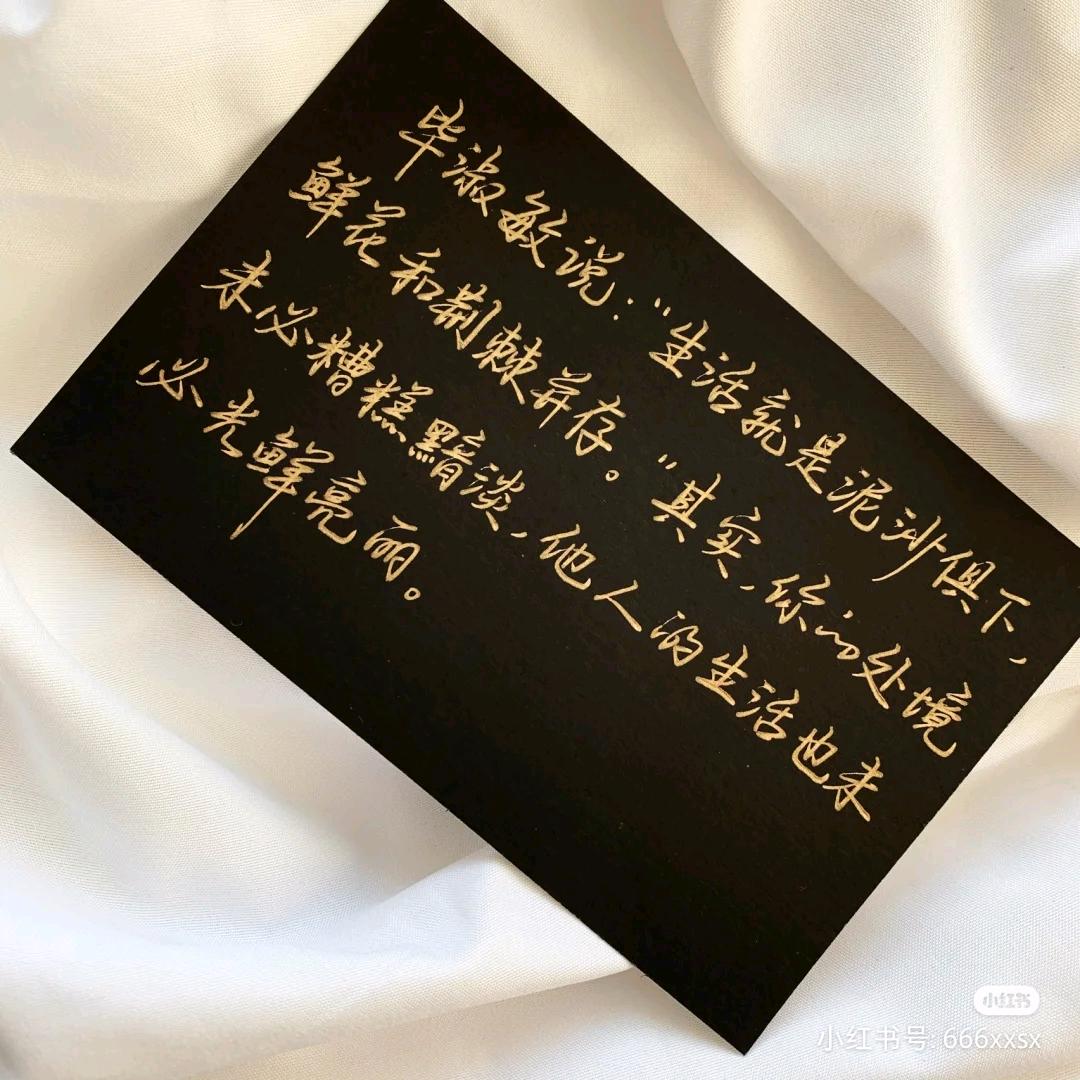 毕淑敏说:“生活就是泥沙俱下,
鲜花和荆棘并存。”其实,你的处境
未必糟糕黯淡,他人的生活也未
必光鲜亮丽。
小红书
小红书号: 666xxsx